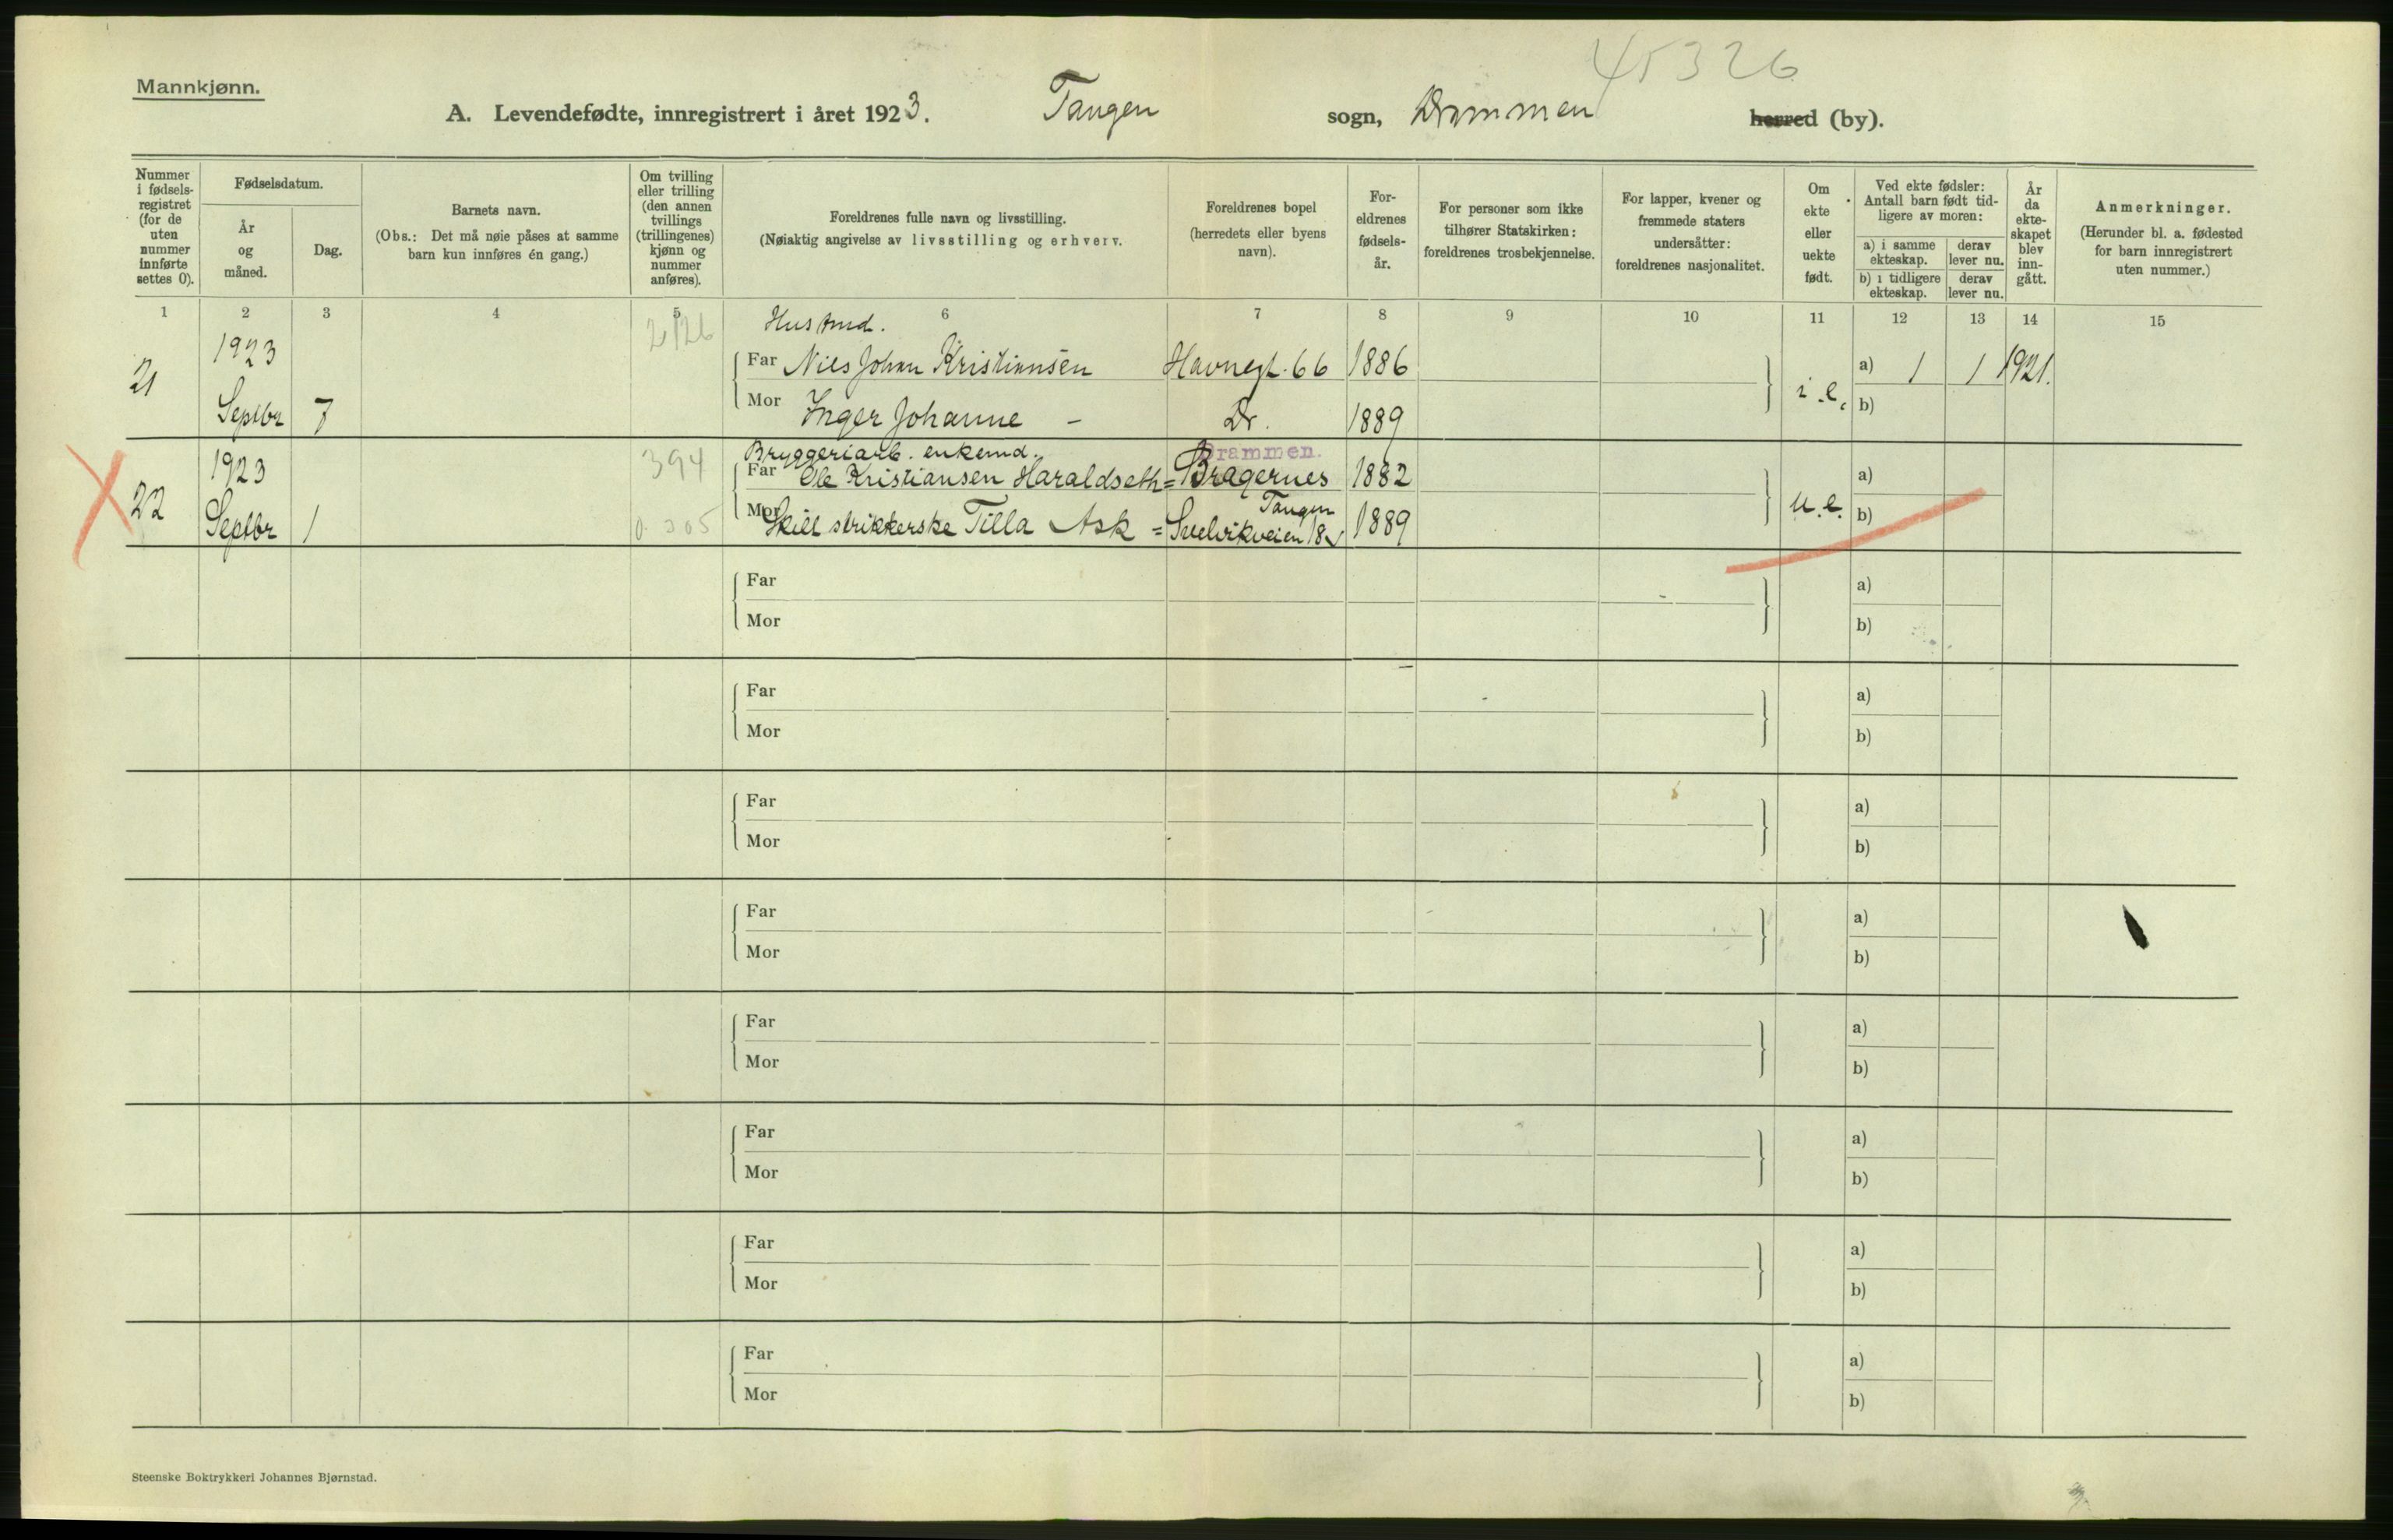 Mannkjønn.
45326
A. Levendefødte, innregistrert i året 1923. Tangen sogn, Drammen herred (by).
Nummer i fødsels- registret (for de uten nummer innførte settes 0).
Fødselsdatum.
År og måned.
Dag.
Barnets navn.
(Obs.: Det må nøie påses at samme barn kun innføres én gang.)
Om tvilling eller trilling (den annen tvillings (trillingenes) kjønn og nummer anføres).
Foreldrenes fulle navn og livsstilling.
(Nøiaktig angivelse av livsstilling og erhverv.
Foreldrenes bopel (herredets eller byens navn).
For- eldrenes fødsels- år.
For personer som ikke tilhører Statskirken: foreldrenes trosbekjennelse.
For lapper, kvener og fremmede staters undersåtter: foreldrenes nasjonalitet.
Om ekte eller uekte født.
Ved ekte fødsler: Antall barn født tid- ligere av moren:
a) i samme ekteskap.
derav lever nu.
b) i tidligere ekteskap.
derav lever nu.
År da ekte- skapet blev inn- gått.
Anmerkninger.
(Herunder bl. a. fødested for barn innregistrert uten nummer.)
1 2 3 4 5 6 7 8 9 10 11 12 13 14 15
21 1923 Septbr 7
Far Nils Johan Kristiansen Havnegt. 66 1886 i.e. a) 1 1 1921.
Mor Inger Johanne - Dr. 1889 b)
22 1923 Septbr 1 394
Bryggeriarb. enkemd. Drammen.
Far Ole Kristiansen Haraldseth = Bragernes 1882 u.e. a)
Tangen
Mor Skilt strikkerske Tilla Ask = Svelvikveien 18 1889 b)
Far a)
Mor b)
Far a)
Mor b)
Far a)
Mor b)
Far a)
Mor b)
Far a)
Mor b)
Far a)
Mor b)
Far a)
Mor b)
Far a)
Mor b)
Steenske Boktrykkeri Johannes Bjørnstad.